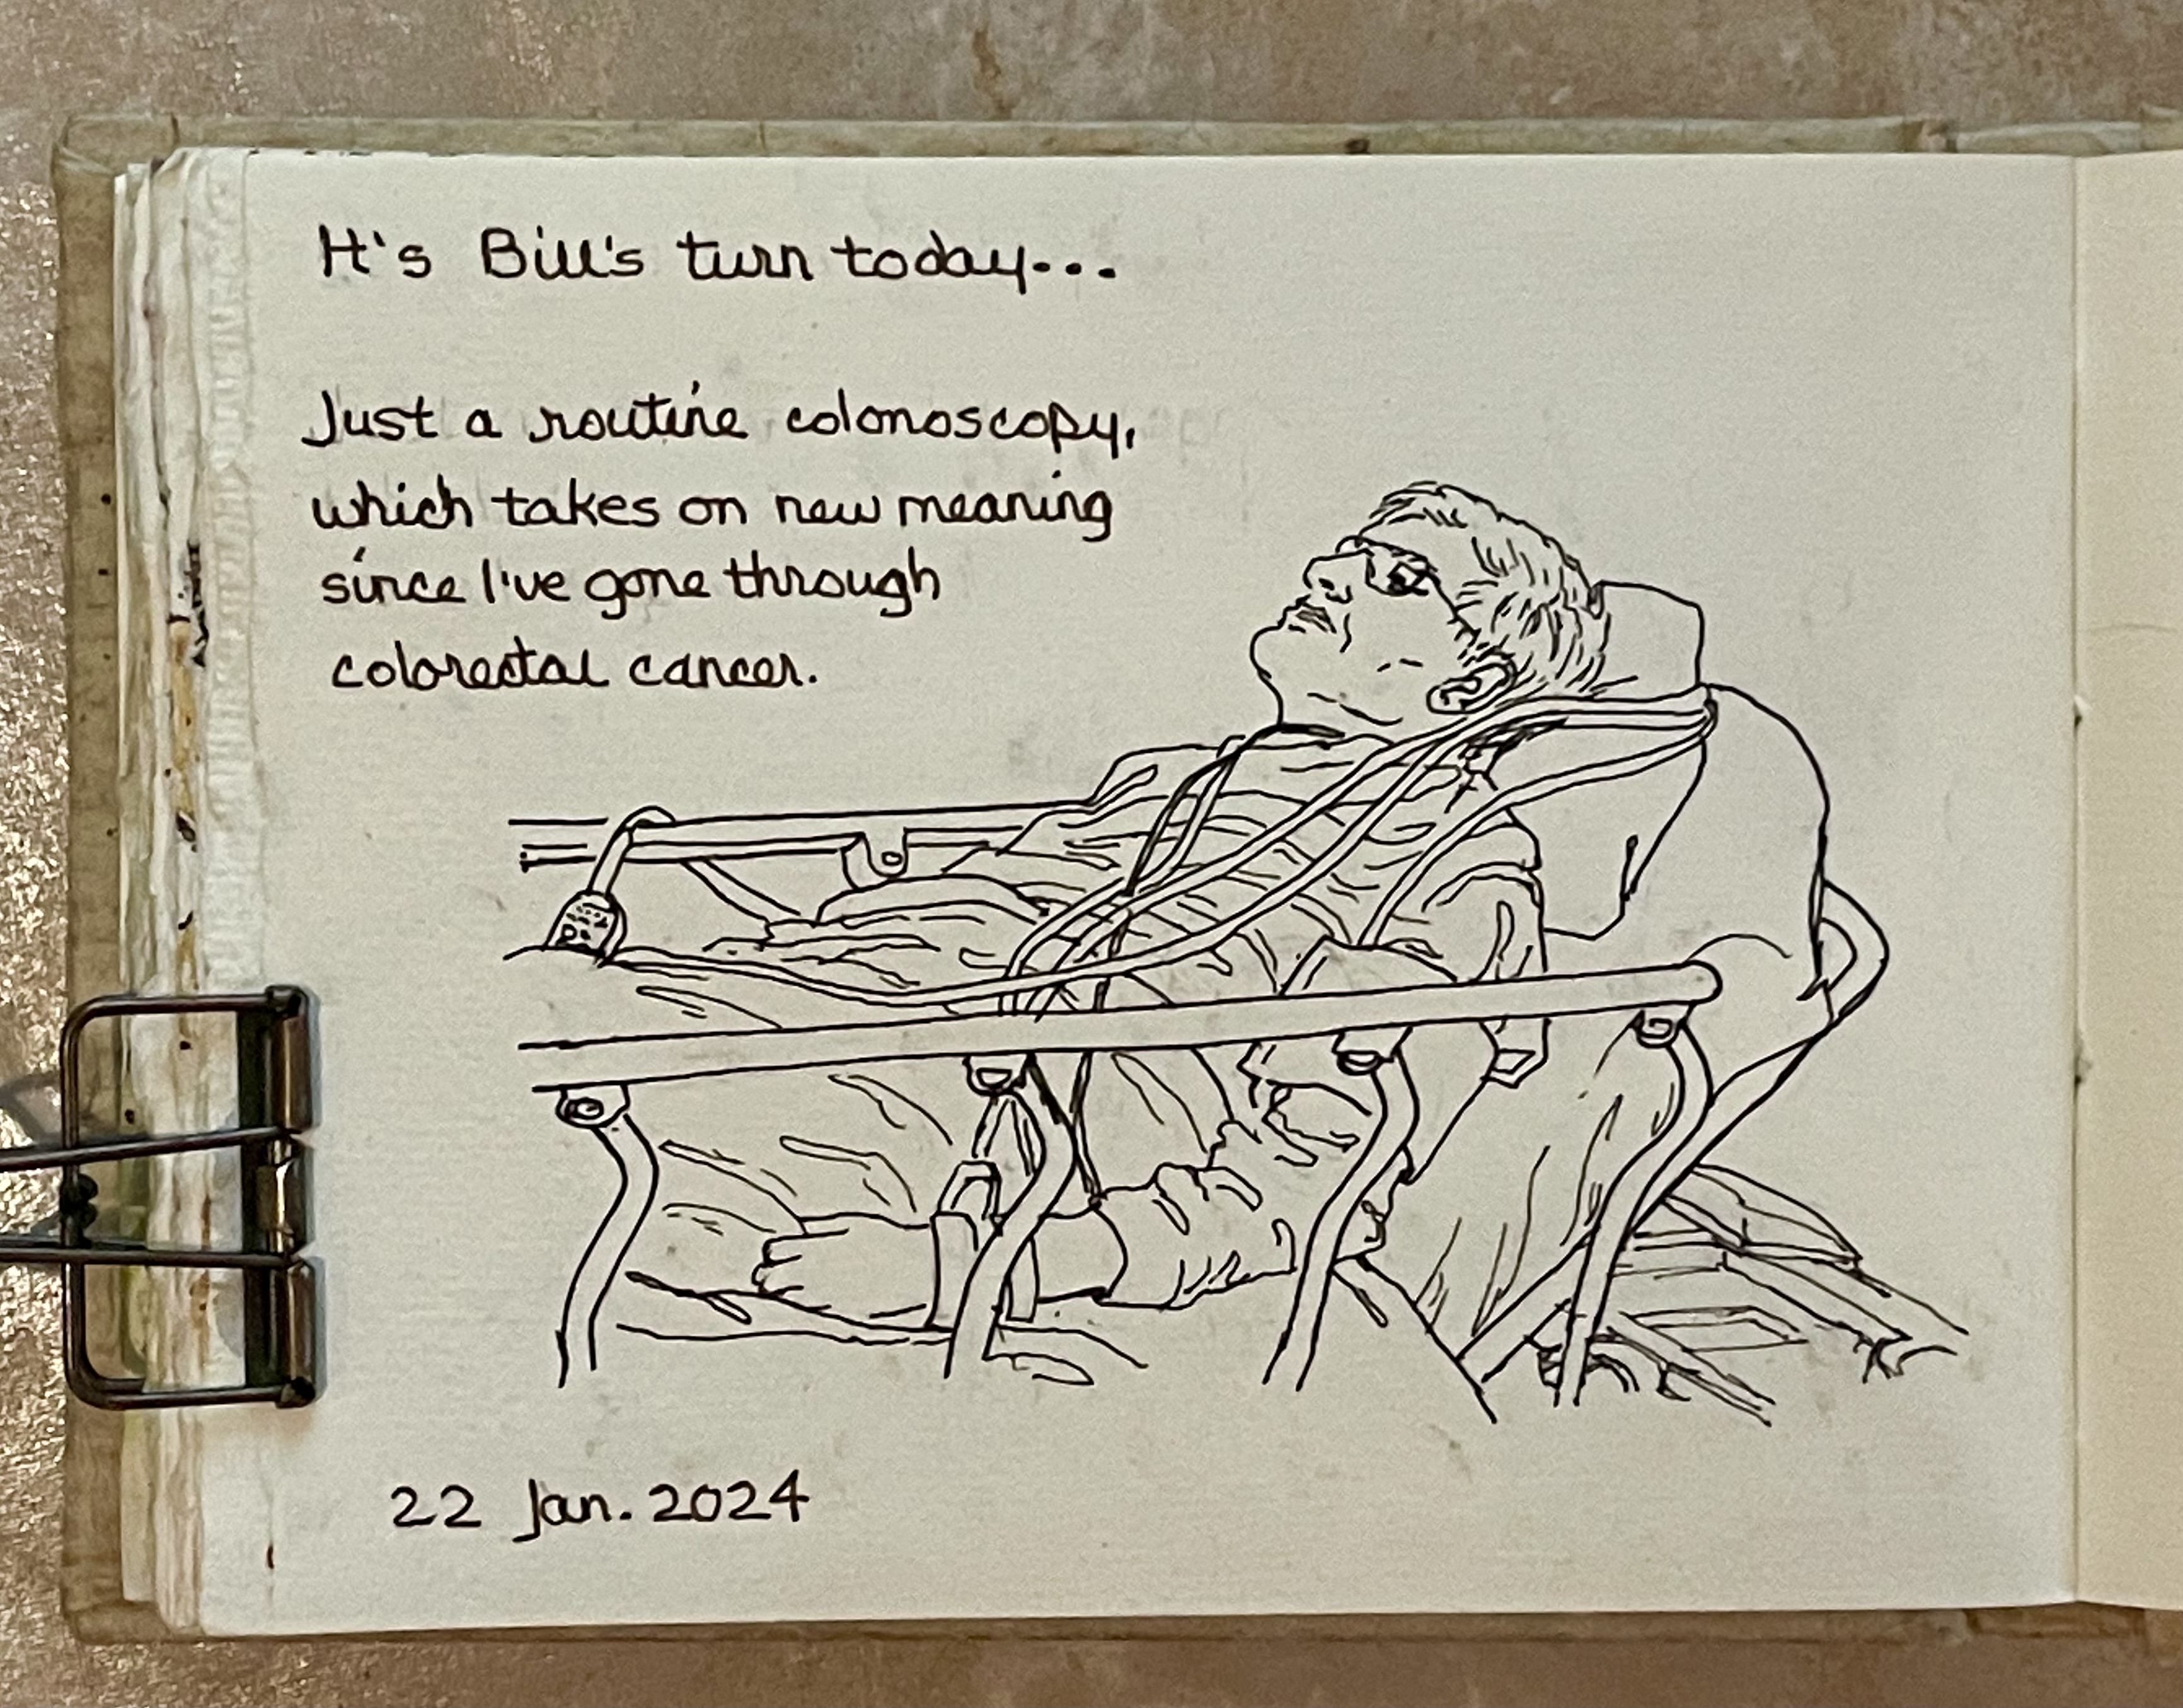 It's Bill's turn today...
Just a routine colonoscopy,
which takes on new meaning
since I've gone through
colorectal cancer.
22 Jan. 2024